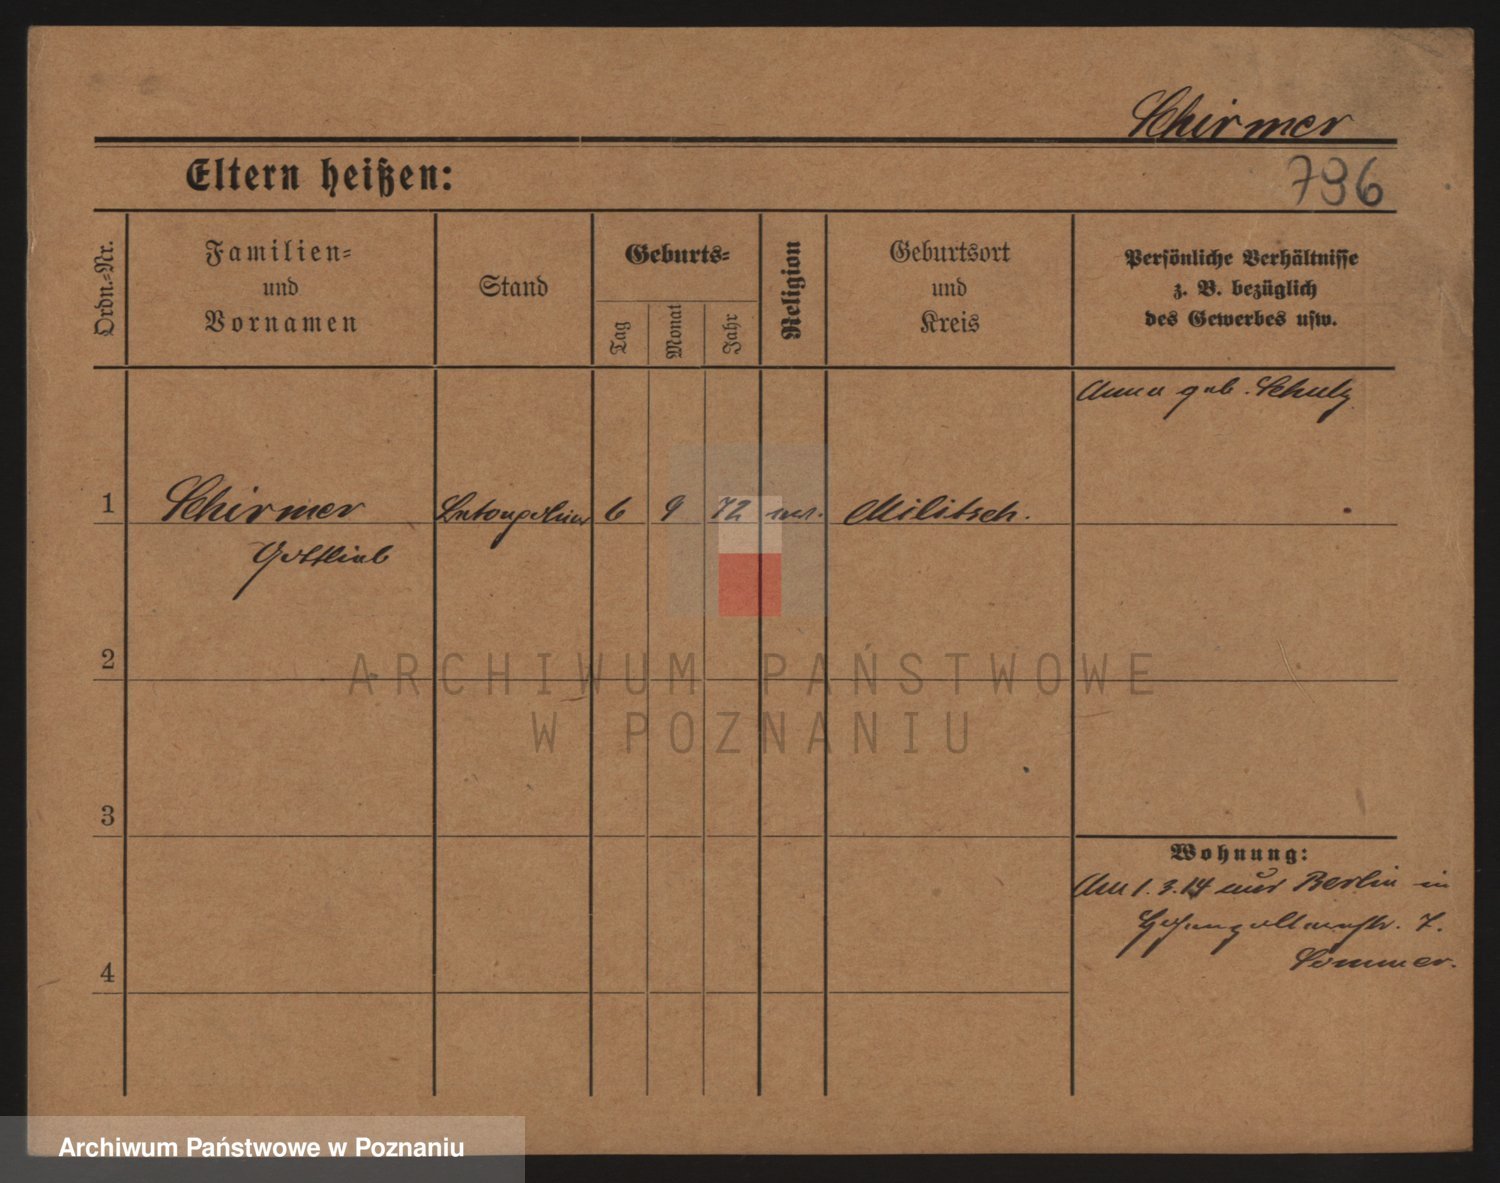 Schirmer
Eltern heißen:
796
Ordn.=Nr.
Familien=
und
Vornamen
Stand
Geburts=
Tag
Monat
Jahr
Religion
Geburtsort
und
Kreis
Persönliche Verhältnisse
z. B. bezüglich
des Gewerbes usw.
Anna geb. Schulz
1
Schirmer
6
9
72
Militsch.
Gottlieb
2
ARCHIWUM PAŃSTWOWE
W POZNANIU
3
Wohnung:
Am 1.3.14 aus Berlin in
7.
Sommer.
4
Archiwum Państwowe w Poznaniu